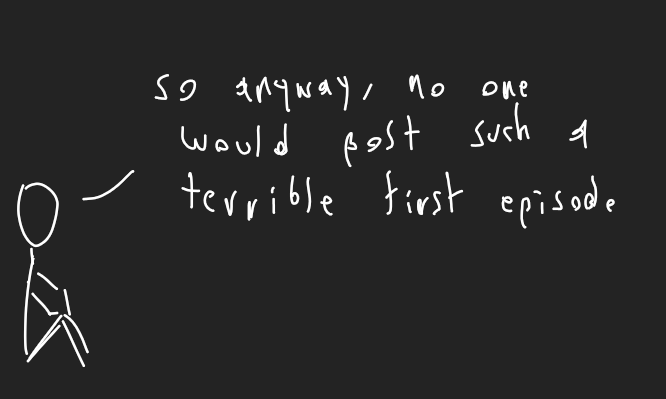 so anyway, no one
would post such a
terrible first episode